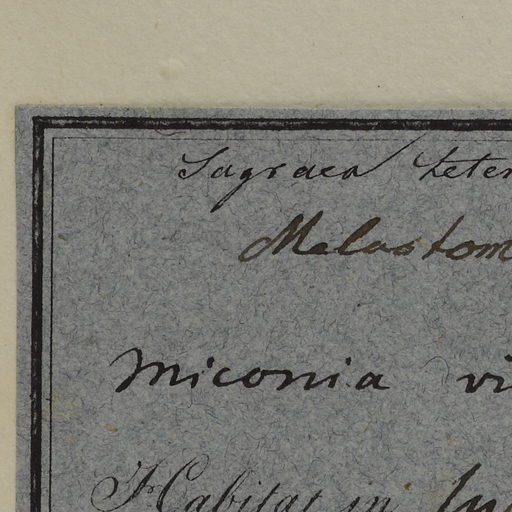 Sagraea heter
Melastom
Miconia vi
Habitat in